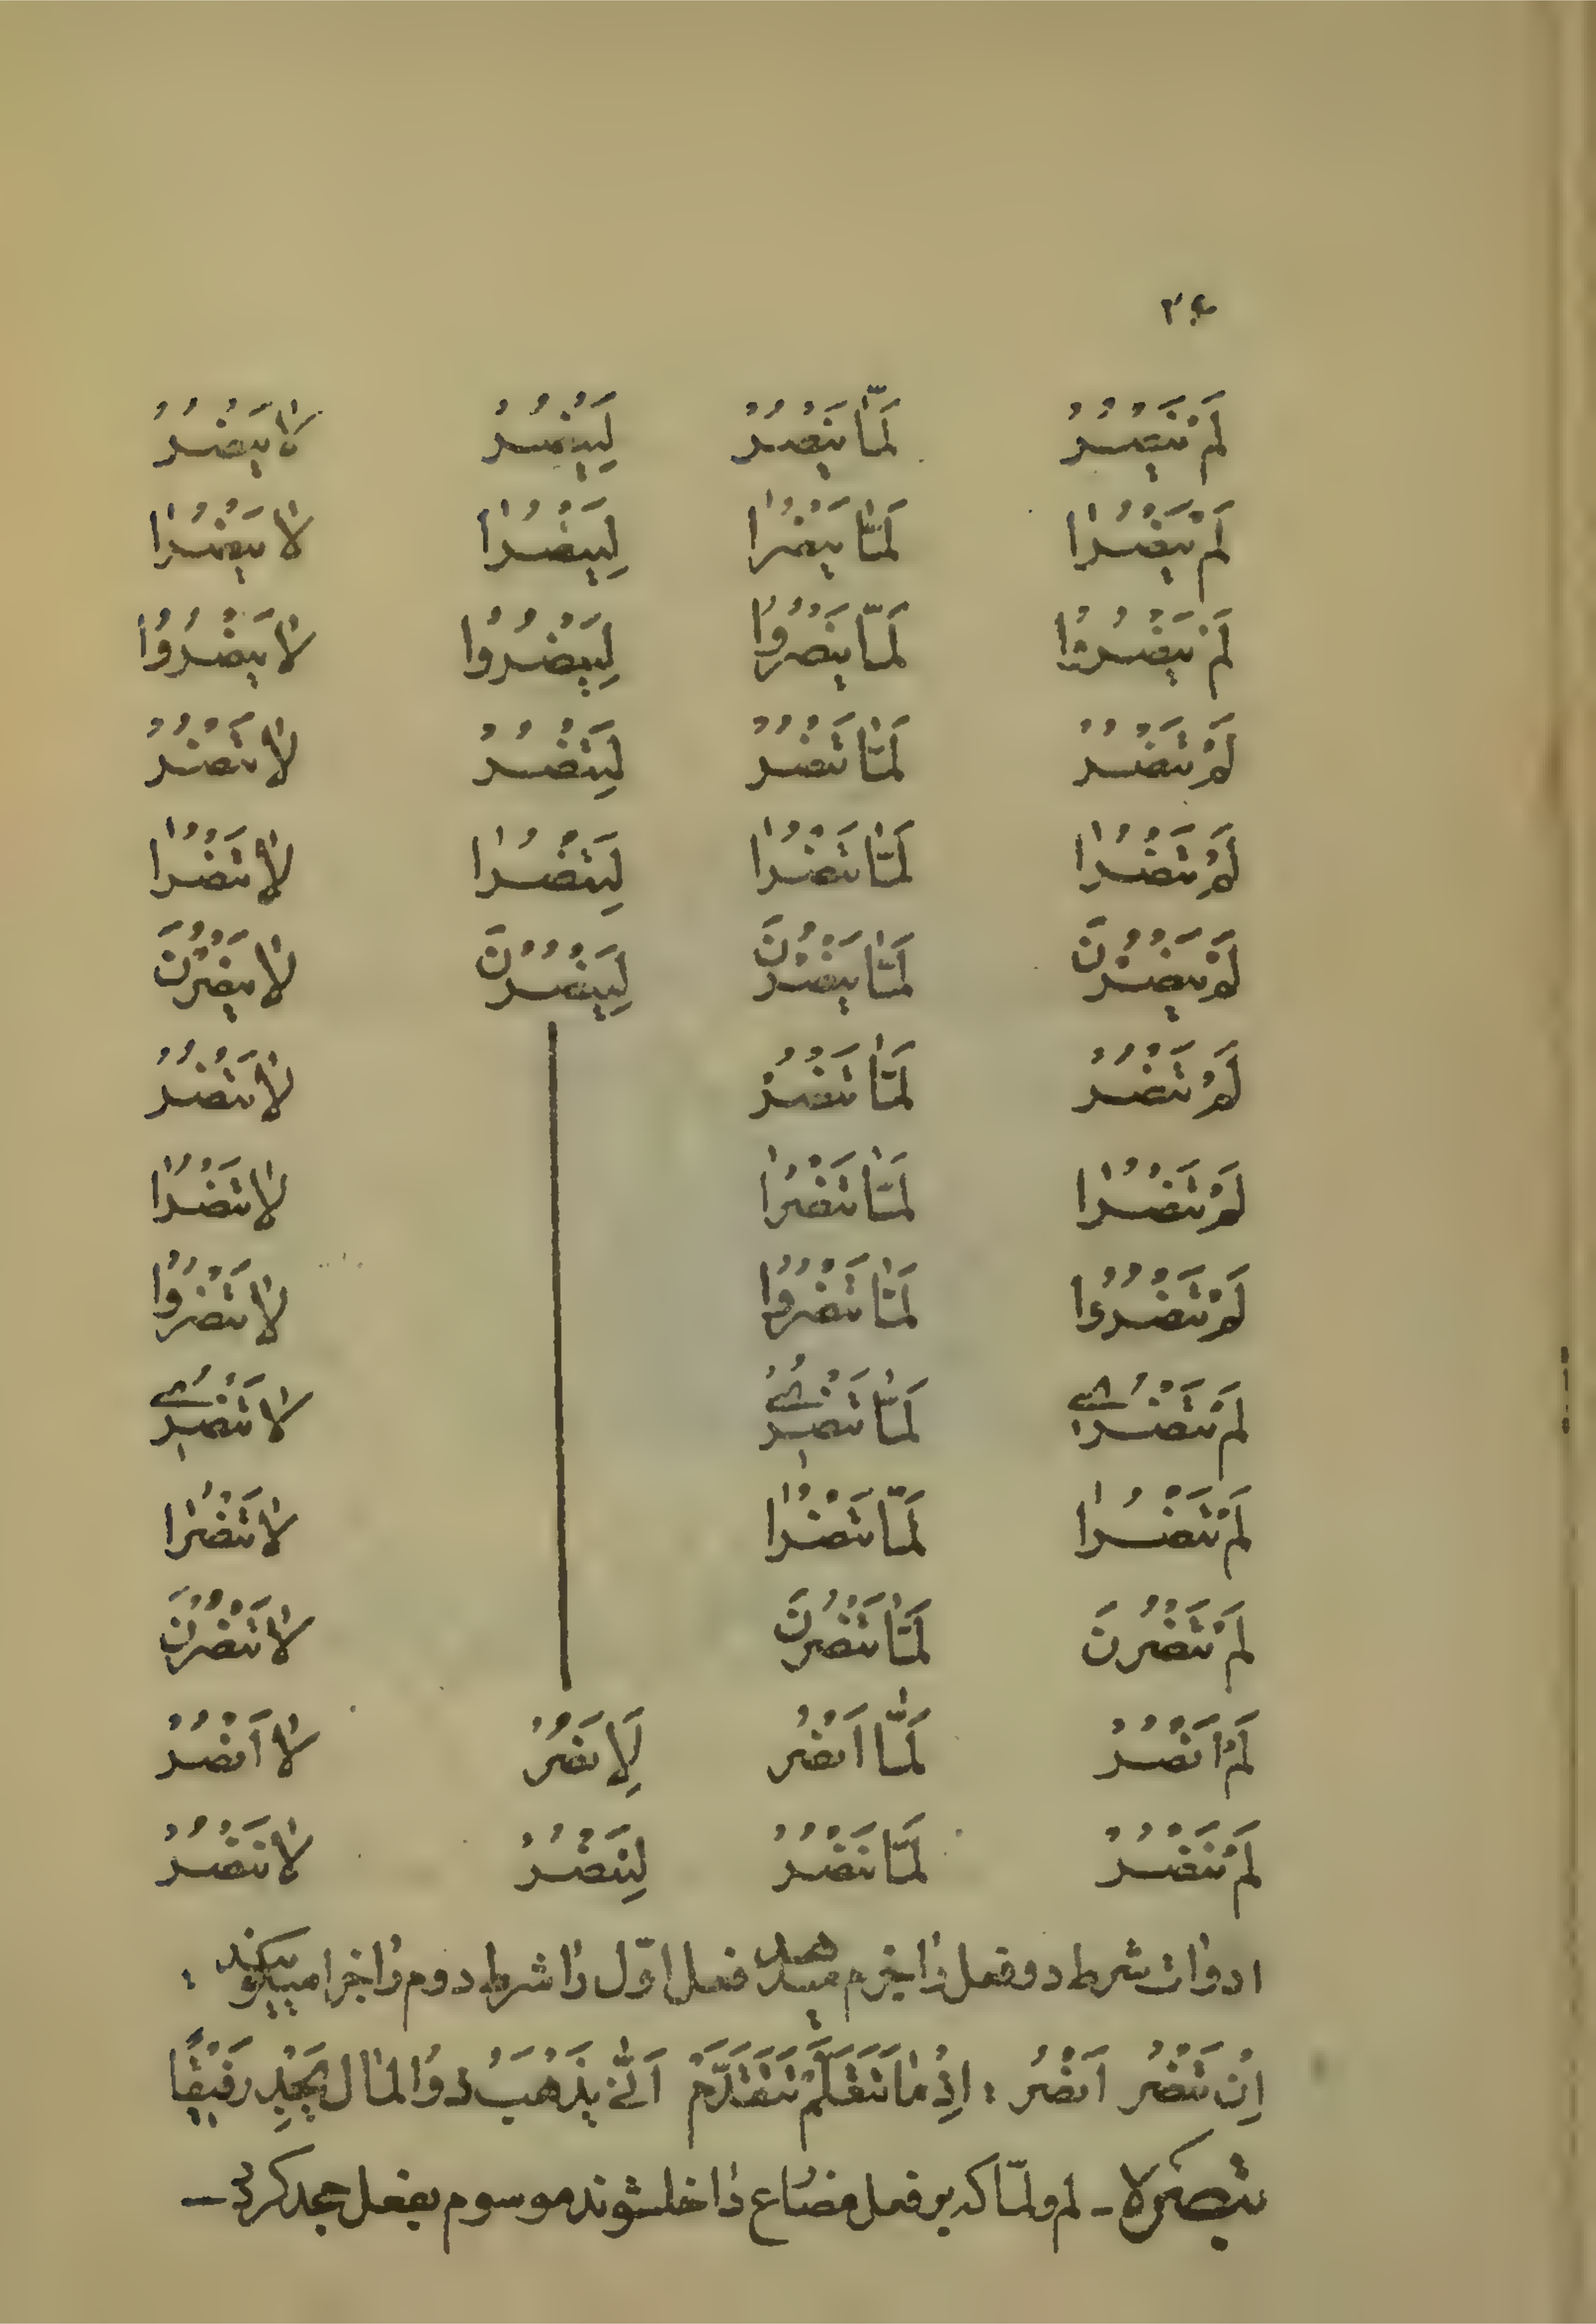 ۲۶
لَمْ يَنْصُرْ لَمّٰا يَنْصُرْ لِيَنْصُرْ لٰا يَنْصُرْ
لَمْ يَنْصُرٰا لَمّٰا يَنْصُرٰا لِيَنْصُرٰا لٰا يَنْصُرٰا
لَمْ يَنْصُرُوْا لَمّٰا يَنْصُرُوْا لِيَنْصُرُوْا لٰا يَنْصُرُوْا
لَمْ تَنْصُرْ لَمّٰا تَنْصُرْ لِتَنْصُرْ لٰا تَنْصُرْ
لَمْ تَنْصُرٰا لَمّٰا تَنْصُرٰا لِتَنْصُرٰا لٰا تَنْصُرٰا
لَمْ يَنْصُرْنَ لَمّٰا يَنْصُرْنَ لِيَنْصُرْنَ لٰا يَنْصُرْنَ
لَمْ تَنْصُرْ لَمّٰا تَنْصُرْ لٰا تَنْصُرْ
لَمْ تَنْصُرٰا لَمّٰا تَنْصُرٰا لٰا تَنْصُرٰا
لَمْ تَنْصُرُوْا لَمّٰا تَنْصُرُوْا لٰا تَنْصُرُوْا
لَمْ تَنْصُرِيْ لَمّٰا تَنْصُرِيْ لٰا تَنْصُرِيْ
لَمْ تَنْصُرٰا لَمّٰا تَنْصُرٰا لٰا تَنْصُرٰا
لَمْ تَنْصُرْنَ لَمّٰا تَنْصُرْنَ لٰا تَنْصُرْنَ
لَمْ اَنْصُرْ لَمّٰا اَنْصُرْ لِاَنْصُرْ لٰا اَنْصُرْ
لَمْ نَنْصُرْ لَمّٰا نَنْصُرْ لِنَنْصُرْ لٰا نَنْصُرْ
ادوات شرط دو فعل را بجزم میدهد فعل اوّل را شرط دوم را جزا میگویند :
اِنْ تَنْصُرْ اَنْصُرْ : اِذْمٰا تَتَعَلَّمْ تَتَقَدَّمْ اَنّٰى يَذْهَبْ ذُوالمٰال يَجِدْ رَفيقًا
تبصره ـ لم و لمّا که بر فعل مضارع داخل شوند موسوم بفعل جحد گردد —